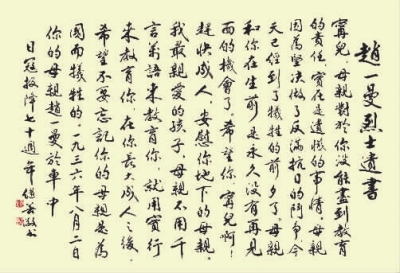 趙一曼烈士遺書
寗兒，母親對於你沒能盡到教育
的責任，實在是遺憾的事情，母親
因為堅決做了反滿抗日的鬥爭，今
天已經到了犧牲的前夕了，母親
和你在生前是永久沒有再見
面的機會了，希望你，寗兒啊！
趕快成人，安慰你地下的母親，
我最親愛的孩子，母親不用千
言萬語來教育你，就用實行
來教育你，在你長大成人之後，
希望不要忘記你的母親是為
國而犧牲的，一九三六年八月二日
你的母親趙一曼於車中
日寇投降七十週年